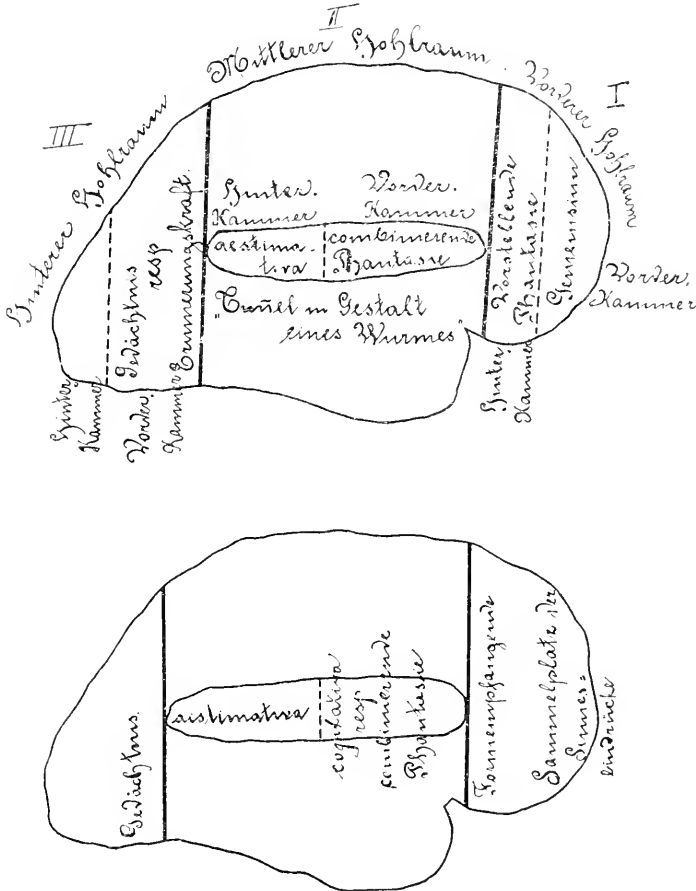 II
Mittlerer Hohlraum.
I
Vorderer Hohlraum
III
Hinterer Hohlraum
Hinter.
Kammer
Vorder.
Kammer
aestima-
tiva
combinierende
Phantasie
"Tunnel in Gestalt
eines Wurmes"
Gedächtnis
resp
Erinnerungskraft.
Vorstellende
Phantasie
Gemeinsinn
Vorder.
Kammer
Hinter.
Kammer
Vorder.
Kammer
Hinter.
Kammer
Gedächtnis.
aestimativa
cogitativa
resp
combinierende
Phantasie
Formempfangende
Sammelplatz der
Sinnes=
eindrücke